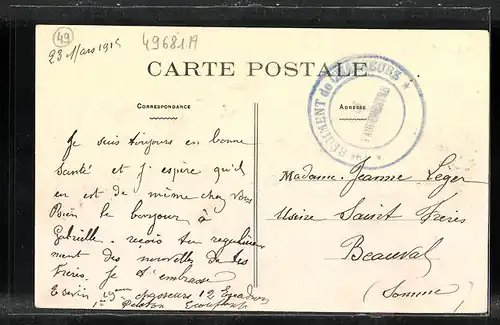 49
23 Mars 1915
49681A
CARTE POSTALE
CORRESPONDANCE
ADRESSE
REGIMENT de CHASSEURS
Je suis toujours en bonne
santé et j espère qu'il
en est de même chez vous
Bien le bonjour à
Gabrielle. reçois tu regulière
ment des nouvelles de tes
frères. Je t'embrasse
chasseurs 12 Escadron
Peloton
Madame Jeanne Léger
Usine Saint Freres
Beauval
(Somme)